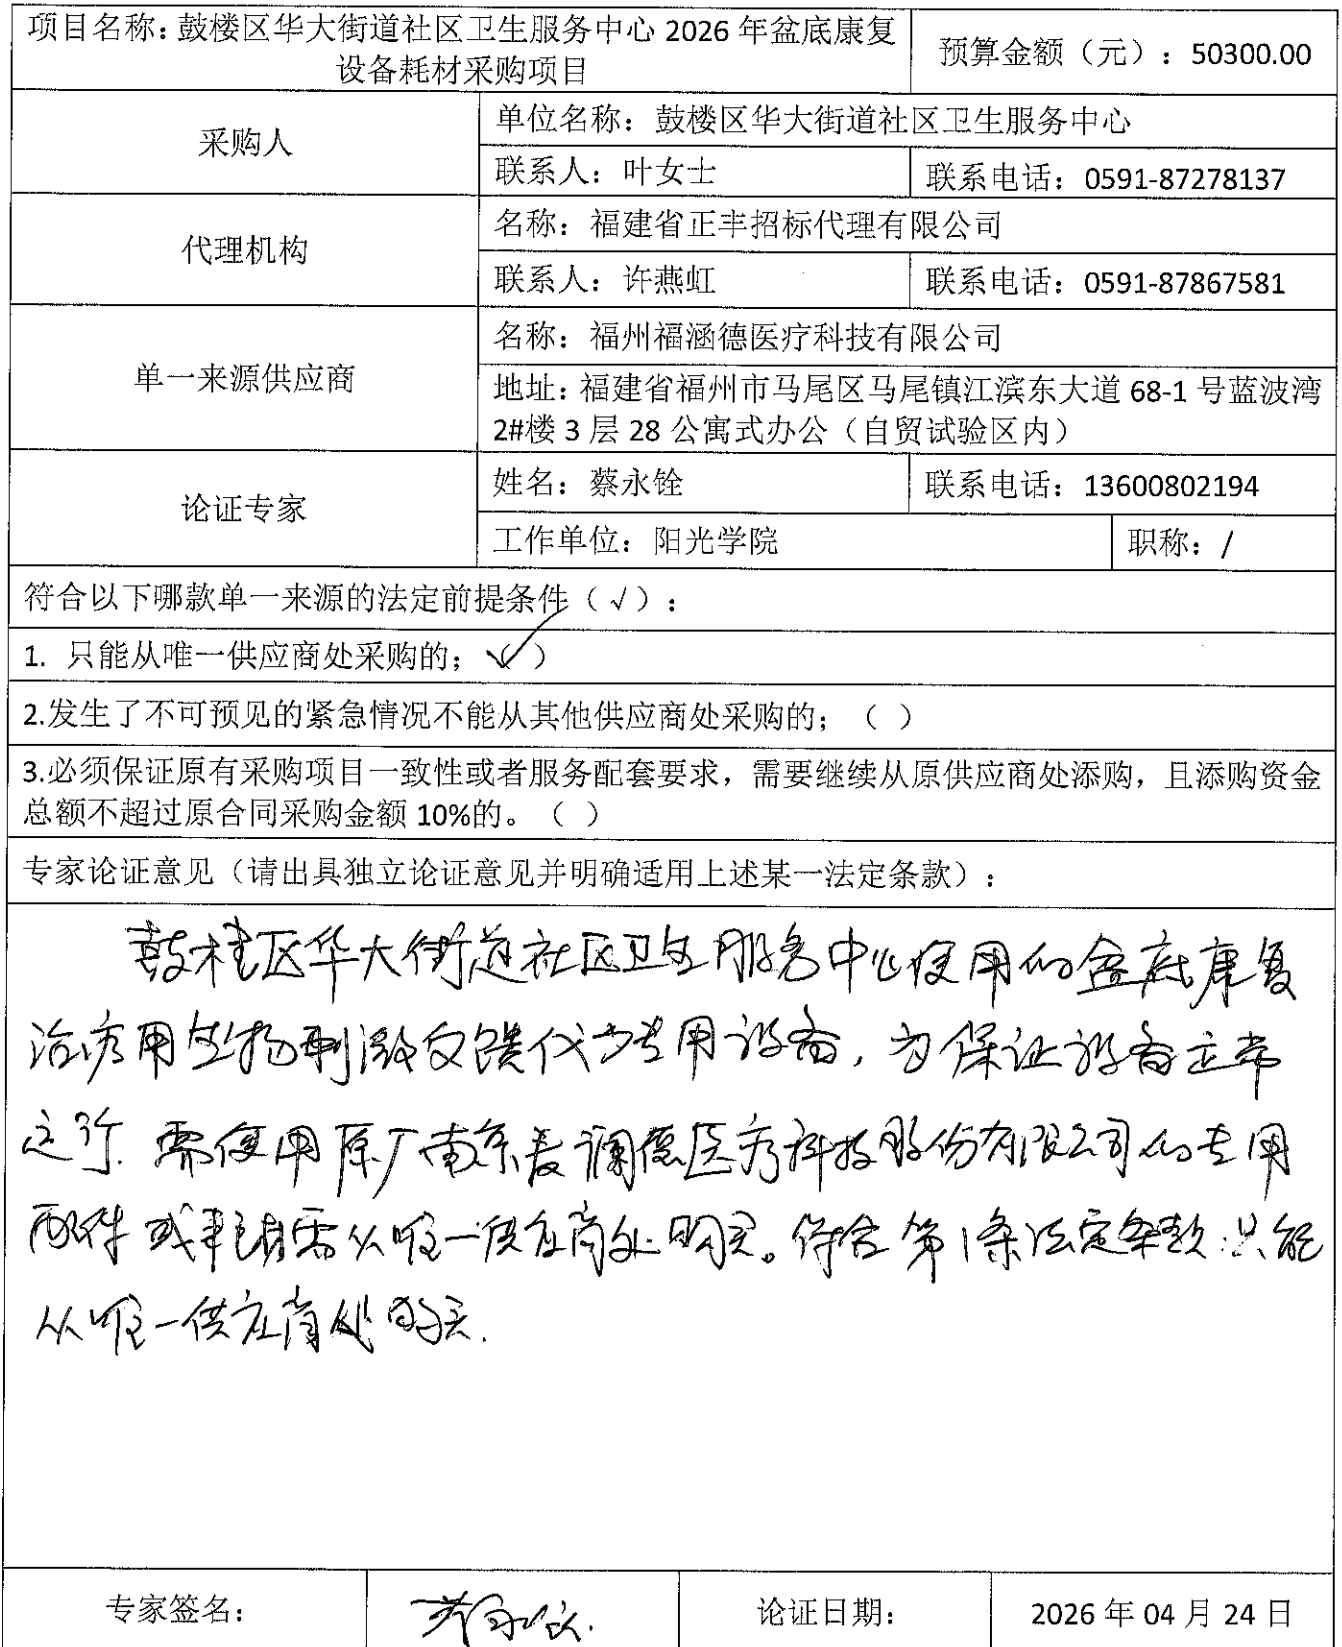 项目名称：鼓楼区华大街道社区卫生服务中心 2026 年盆底康复
设备耗材采购项目
预算金额（元）：50300.00
采购人
单位名称：鼓楼区华大街道社区卫生服务中心
联系人：叶女士
联系电话：0591-87278137
代理机构
名称：福建省正丰招标代理有限公司
联系人：许燕虹
联系电话：0591-87867581
单一来源供应商
名称：福州福涵德医疗科技有限公司
地址：福建省福州市马尾区马尾镇江滨东大道 68-1 号蓝波湾
2#楼 3 层 28 公寓式办公（自贸试验区内）
论证专家
姓名：蔡永铨
联系电话：13600802194
工作单位：阳光学院
职称：/
符合以下哪款单一来源的法定前提条件（√）：
1. 只能从唯一供应商处采购的；（✓）
2.发生了不可预见的紧急情况不能从其他供应商处采购的；（ ）
3.必须保证原有采购项目一致性或者服务配套要求，需要继续从原供应商处添购，且添购资金
总额不超过原合同采购金额 10%的。（ ）
专家论证意见（请出具独立论证意见并明确适用上述某一法定条款）：
鼓楼区华大街道社区卫生服务中心使用的盆底康复
治疗用生物刺激反馈仪为专用设备，为保证设备正常
运行，需使用原厂南京麦澜德医疗科技股份有限公司的专用
配件或耗材需从唯一供应商处购买。符合第1条法定条款：只能
从唯一供应商处购买.
专家签名：
蔡永铨
论证日期：
2026 年 04 月 24 日